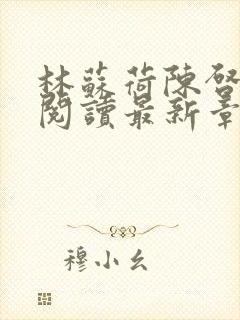 林蘇荷陳啓
閱讀最新章
穆小幺